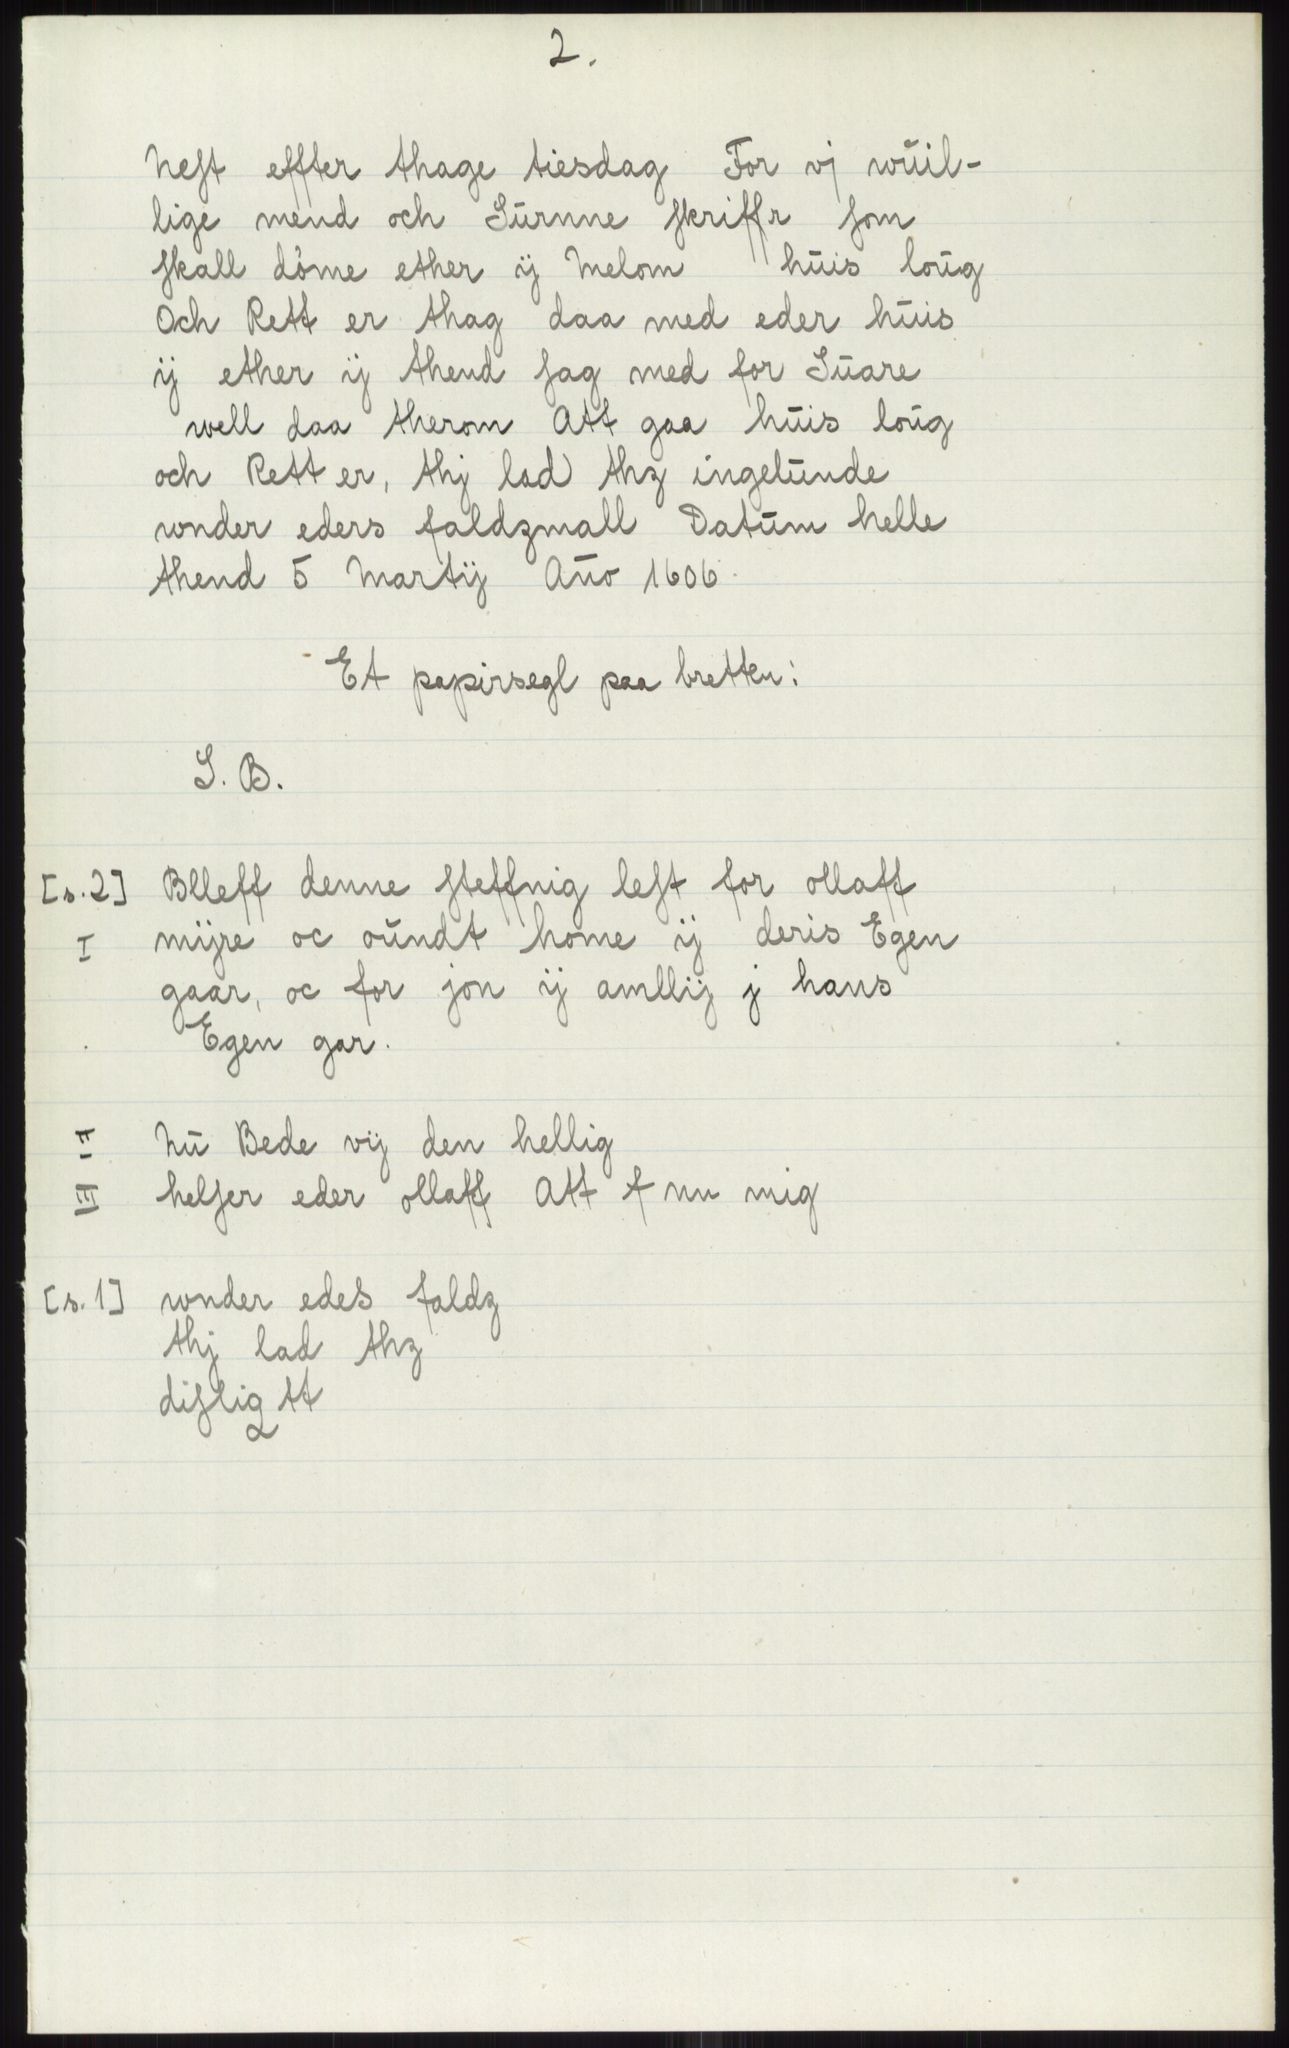 2.
Neſt effter thage tiesdag For vj wŭil-
lige mend och Sūrnne ſkriffr ſom
ſkall dòme ether ij Melom hūis loūg
Och Rett er thag daa med eder hūis
ij ether ij thend ſag med for Sūare
well daa therom Att gaa hūis loūg
och Rett er, thj lad thz ingelūnde
wnder eders faldzmall Datūm helle
thend 5 Martij Año 1606.
Et papirsegl paa bretten:
S. B.
[s. 2] Blleff denne ſteffnig leſt for ollaff
I mijre oc oŭndt home ij deris Egen
gaar, oc for jon ij amllij j hans
Egen gar.
II Nū Bede vij den hellig
III helſer eder ollaff Att f nu mig
[s. 1] wnder edeS faldz
thj lad thz
diſlig tt